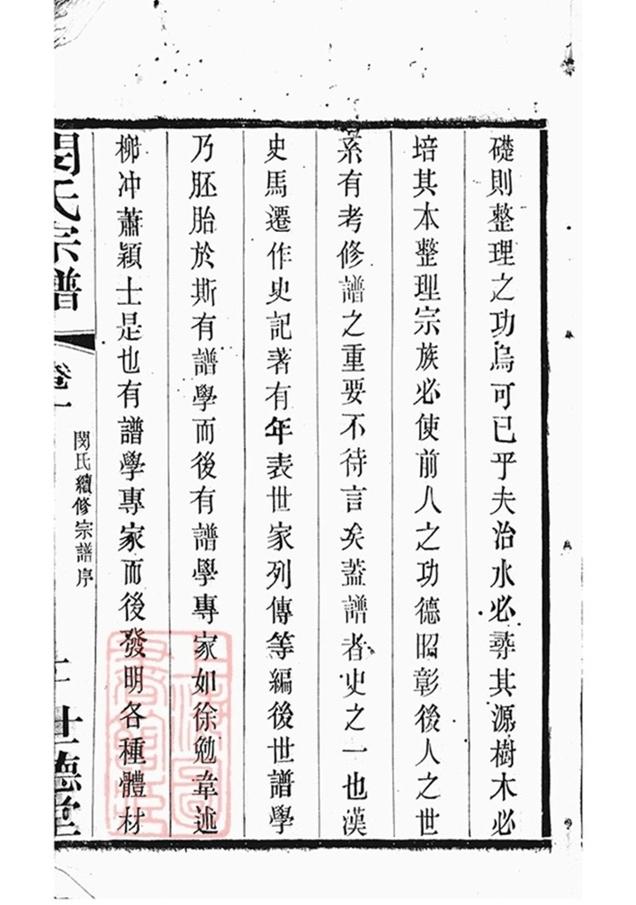 礎則整理之功烏可已乎夫治水必尋其源樹木必
培其本整理宗族必使前人之功德昭彰後人之世
系有考修譜之重要不待言矣蓋譜者史之一也漢
史馬遷作史記著有年表世家列傳等編後世譜學
乃胚胎於斯有譜學而後有譜學專家如徐勉韋述
柳冲蕭穎士是也有譜學專家而後發明各種體材
閔氏宗譜
卷一
閔氏續修宗譜序
世德堂